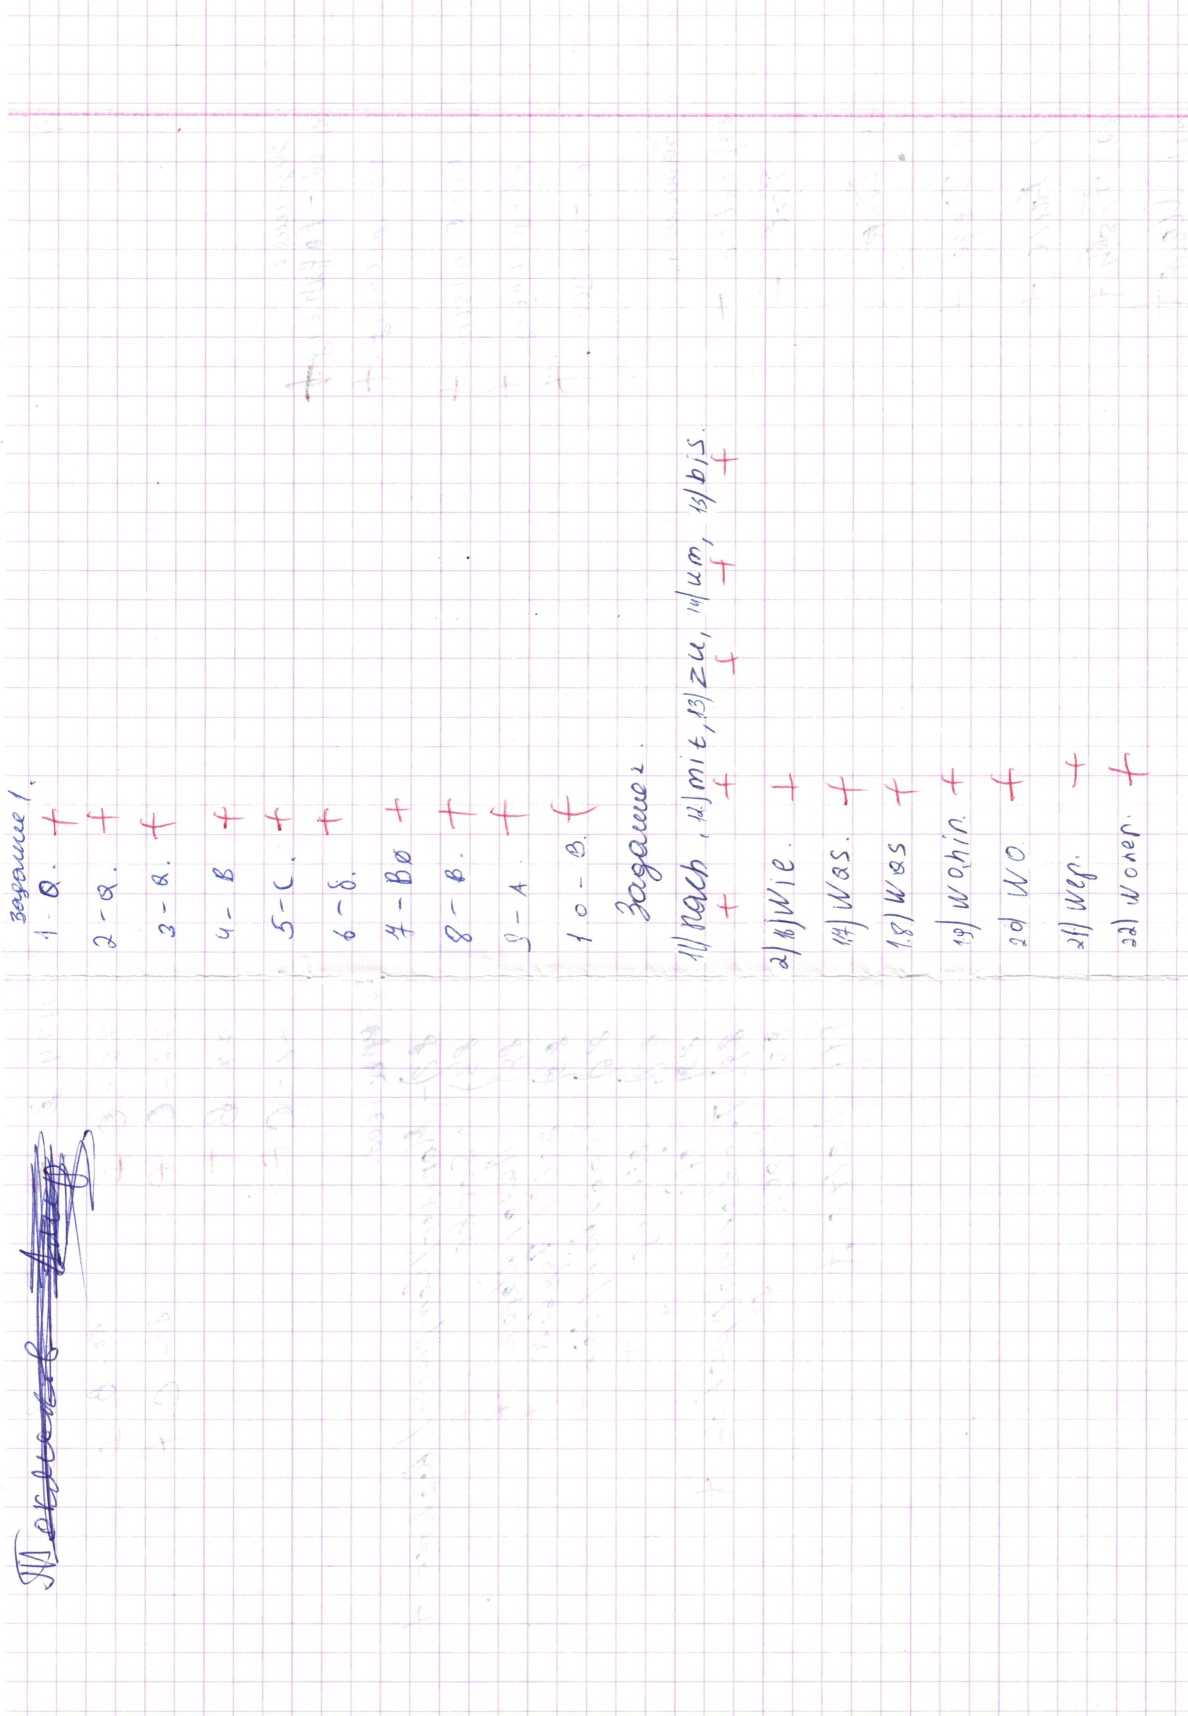 задание 1.
1 - а. +
2 - а. +
3 - а. +
4 - В +
5 - С. +
6 - б. +
7 - В +
8 - В. +
9 - А. +
10 - В. +
Задание 2.
11) nach, 12) mit, 13) zu, 14) um, 15) bis.
+ + + + +
2) 16) Wie. +
17) Was. +
18) Was +
19) Wohin. +
20) Wo. +
21) Wer. +
22) Woher. +